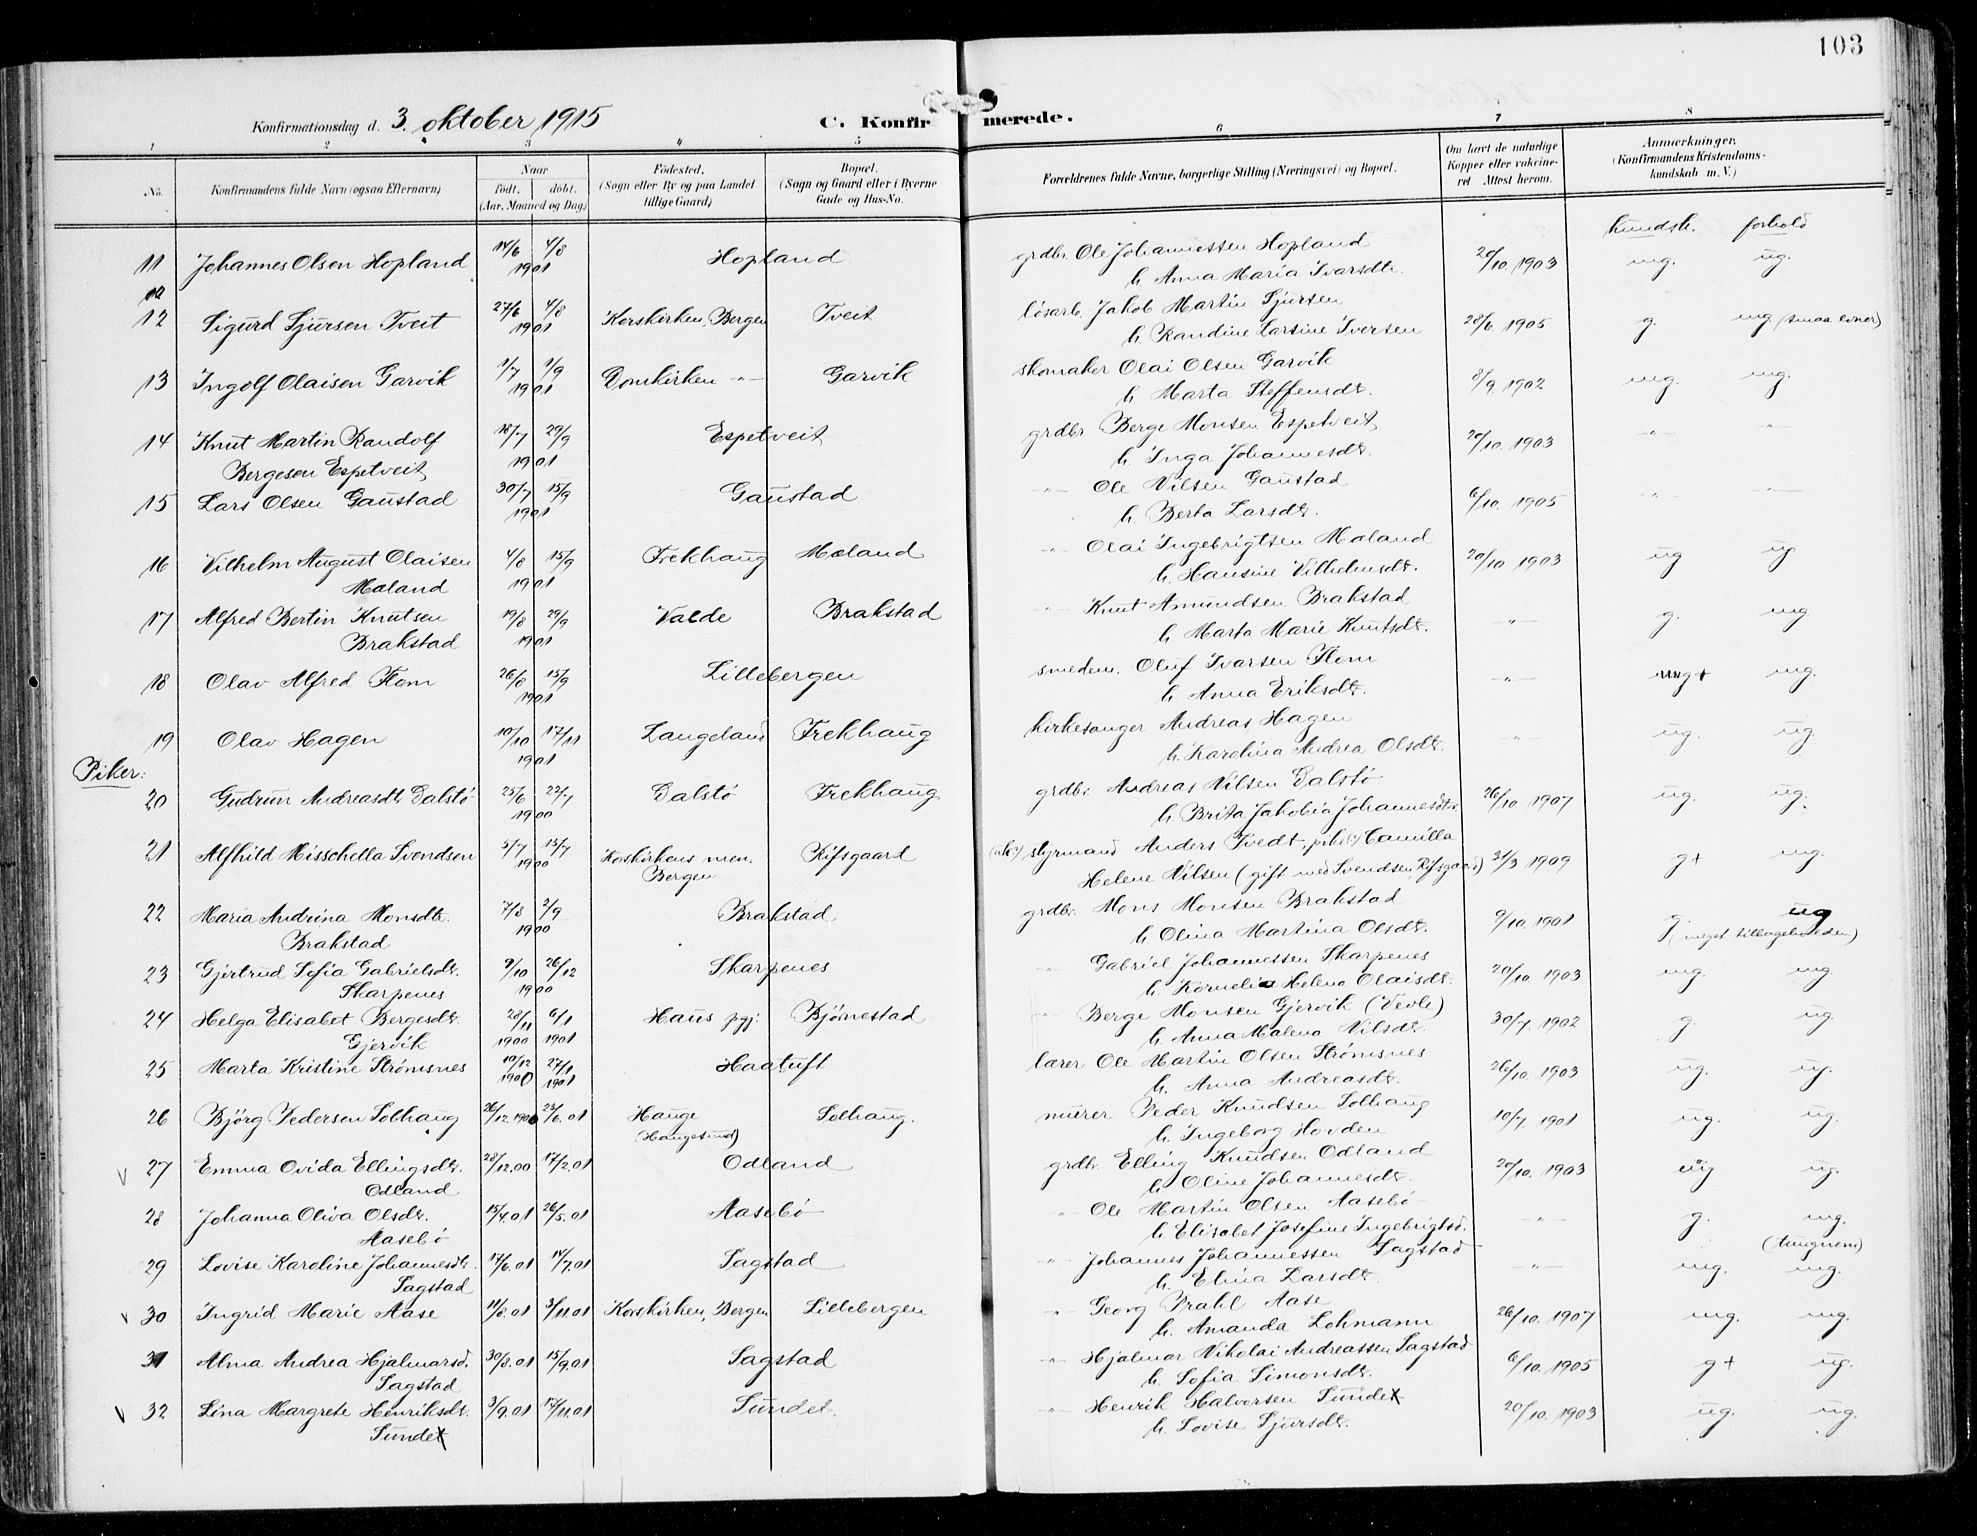 103
Konfirmationsdag d. 3. oktober 1915 C. Konfirmerede.
1 2 3 4 5 6 7 8
No. Konfirmandens fulde Navn (ogsaa Efternavn) Naar født. døbt. (Aar, Maaned og Dag) Fødested. (Sogn eller By og paa Landet tillige Gaard) Bopæl. (Sogn og Gaard eller i Byerne Gade og Hus-No. Forældrenes fulde Navne, borgerlige Stilling (Næringsvei) og Bopæl. Om havt de naturlige Kopper eller vakcineret. Attest herom. Anmærkninger. (Konfirmandens Kristendomskundskab m. V.)
kundsk. forhold
11 Johannes Olsen Hopland 14/6 4/8 Hopland grdbr. Ole Johannessen Hopland 20/10. 1903 mg. ug.
1901 h. Anna Maria Ivarsdtr.
12 Sigurd Sjursen Tveit 27/6 4/8 Korskirken, Bergen Tveit løsarb. Jakob Martin Sjursen 28/6. 1905 g. mg. (smaa evner)
1901 h. Randine Larsine Iversen
13 Ingolf Olaisen Garvik 1/7 1/9 Domkirken -"- Garvik skomaker Olai Olsen Garvik 8/9. 1902 mg. mg.
1901 h. Marta Steffensdt.
14 Knut Martin Randolf 18/7 29/9 Espetveit grdbr. Berge Monsen Espetveit 20/10. 1903 -"- -"-
Bergesen Espetveit 1901 h. Inga Johannesdt.
15 Lars Olsen Gaustad 30/7 15/9 Gaustad -"- Ole Nilsen Gaustad 6/10. 1905 -"- -"-
1901 h. Berta Larsdt.
16 Vilhelm August Olaisen 4/8 15/9 Frekhaug Mæland -"- Olai Ingebrigtsen Mæland 20/10. 1903 ug ug
Mæland 1901 h. Hansine Vilhelmsdt.
17 Alfred Bertin Knutsen 19/8 29/9 Valde Brakstad -"- Knut Amundsen Brakstad -"- g. mg.
Brakstad 1901 h. Marta Marie Knutsdt.
18 Olav Alfred Flem 26/8 15/9 Lillebergen smedem. Oluf Ivarsen Flem -"- mg+ mg.
1901 h. Anna Eriksdt.
19 Olav Hagen 10/10 17/11 Langeland Frekhaug kirkesanger Andreas Hagen -"- ug. ug
1901 h. Karolina Andrea Olsdt.
Piker:
20 Gudrun Andreasdt. Dalstø 25/6 22/7 Dalstø Frekhaug grdbr. Andreas Nilsen Dalstø 26/10. 1907 ug. ug.
1900 h. Brita Jakobia Johannesdt.
21 Alfhild Misschella Svendsen 5/7 15/7 Korskirkens men. Rifsgaard styrmand Anders Tvedt, pike Camilla 31/3 1909 g+ mg.
1900 Bergen Helene Nilsen (gift med Svendsen Rifsgaard)
22 Maria Andrina Monsdtr. 7/8 2/9 Brakstad grdbr. Mons Monsen Brakstad 9/10. 1901 g. ug
Brakstad 1900 h. Olina Martina Olsdt. (meget tilbageholden)
23 Gjertrud Sofia Gabrielsdt. 9/10 26/12 Skarpenes -"- Gabriel Johannessen Skarpenes 20/10. 1903 mg. mg
Skarpenes 1900 h. Kornelia Helena Olaisdt.
24 Helga Elisabet Bergesdt. 28/11 6/1 Haus pgj. Bjørnestad -"- Berge Monsen Gjervik (Vevle) 30/7. 1902 g. ug.
Gjervik 1900 1901 h. Anna Malena Nilsdt.
25 Marta Kristine Strømsnes 10/12 27/1 Haatuft lærer Ole Martin Olsen Strømsnes 26/10. 1903 ug. ug.
1900 1901 h. Anna Andreasdt.
26 Bjørg Pedersen Solhaug 26/12.1900 23/6.01 Hauge Solhaug. murer Peder Knudsen Solhaug 10/7. 1901 ug. ug.
(Haugesund) h. Ingeborg Hovden
v 27 Emma Ovida Ellingsdt. 28/12.00 17/2.01 Odland grdbr. Elling Knudsen Odland 20/10. 1903 ug ug.
Odland h. Oline Johannesdt.
28 Johanna Oliva Olsdt. 15/4.01 26/5.01 Aasebø -"- Ole Martin Olsen Aasebø -"- g. mg.
Aasebø h. Elisabet Josefine Ingebrigtsd. (tungnem)
29 Lovise Karoline Johannesdt. 17/6.01 14/7.01 Sagstad -"- Johannes Johannessen Sagstad -"- mg. mg.
Sagstad h. Elina Larsdt.
v 30 Ingrid Marie Aase 11/8.01 3/11.01 Korskirken, Bergen Lillebergen -"- Georg Prahl Aase 26/10. 1907 mg. mg.
h. Amanda Lohmann
31 Alma Andrea Hjalmarsd. 30/8.01 15/9.01 Sagstad -"- Hjalmar Nikolai Andreassen Sagstad 6/10. 1905 g+ ug.
Sagstad h. Sofia Simonsdt.
v 32 Lina Margrete Henriksdt. 3/9.01 17/11.01 Sundet. -"- Henrik Halvorsen Sundet 20/10. 1903 ug. ug.
Sundet h. Lovise Sjursdt.